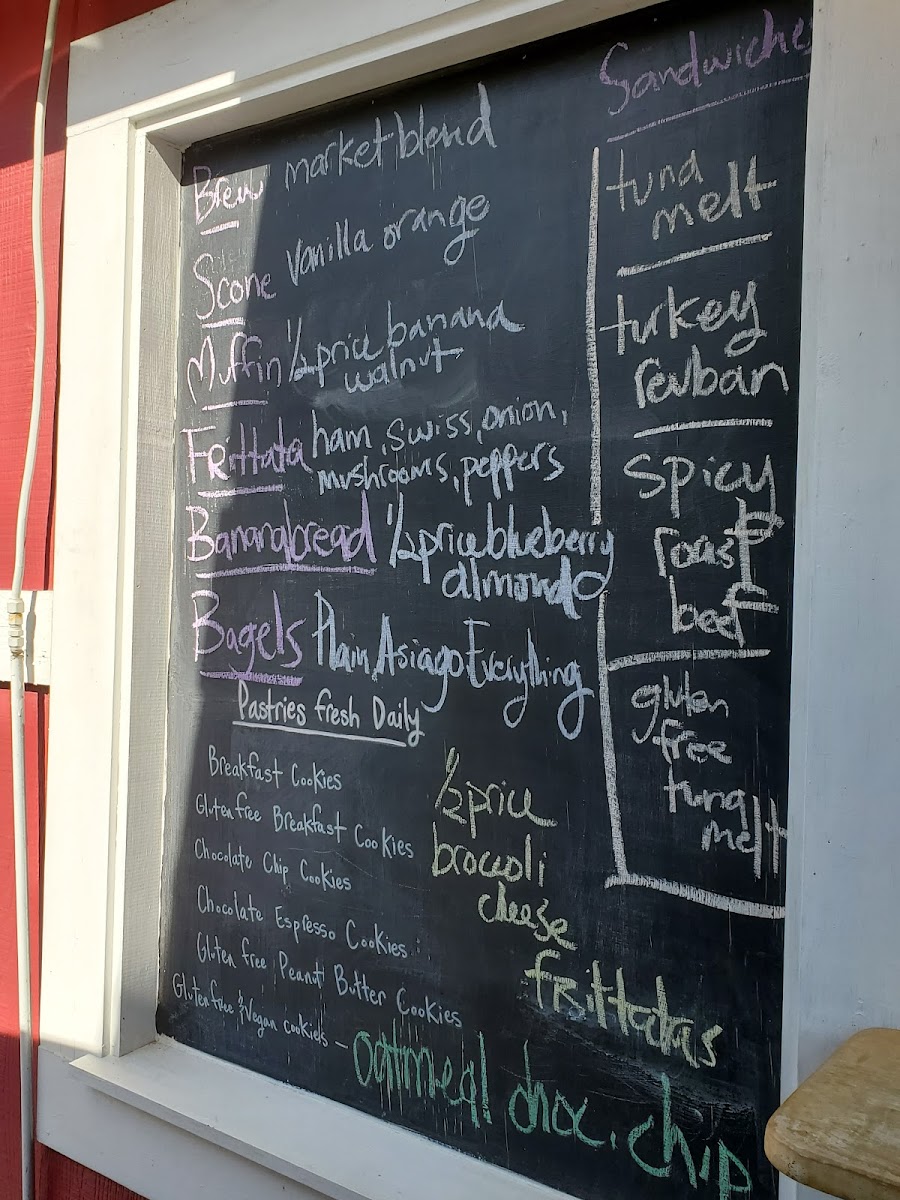 Brew market blend
Scone Vanilla orange
Muffin ½ price banana
walnut
Frittata ham, swiss, onion,
mushrooms, peppers
Bananabread ½ price blueberry
almond
Bagels Plain, Asiago Everything
Pastries fresh Daily
Breakfast Cookies
Gluten free Breakfast Cookies
Chocolate Chip Cookies
Chocolate Espresso Cookies
Gluten free Peanut Butter Cookies
Gluten free & Vegan cookies — oatmeal choc. chip
½ price
broccoli
cheese
frittatas
Sandwiches
tuna
melt
turkey
reuban
spicy
roast
beef
gluten
free
tuna
melt